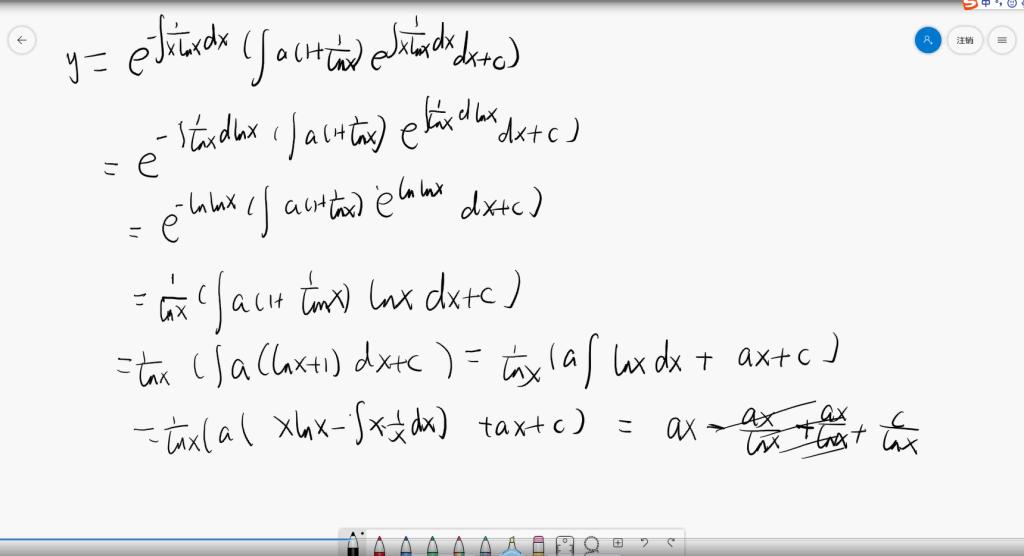 中
注销
y = e^{-∫\frac{1}{xlnx}dx} (∫a(1+\frac{1}{lnx}) e^{∫\frac{1}{xlnx}dx} dx+c)
= e^{-∫\frac{1}{lnx}dlnx} (∫a(1+\frac{1}{lnx}) e^{∫\frac{1}{lnx}dlnx} dx+c)
= e^{-lnlnx} (∫ a(1+\frac{1}{lnx}) e^{lnlnx} dx+c)
= \frac{1}{lnx} (∫a(1+\frac{1}{lnx}) lnx dx+c)
= \frac{1}{lnx} (∫a(lnx+1) dx+c) = \frac{1}{lnx} (a∫ lnx dx + ax+c)
= \frac{1}{lnx} (a( xlnx-∫x·\frac{1}{x}dx) +ax+c) = ax - \frac{ax}{lnx} + \frac{ax}{lnx} + \frac{c}{lnx}